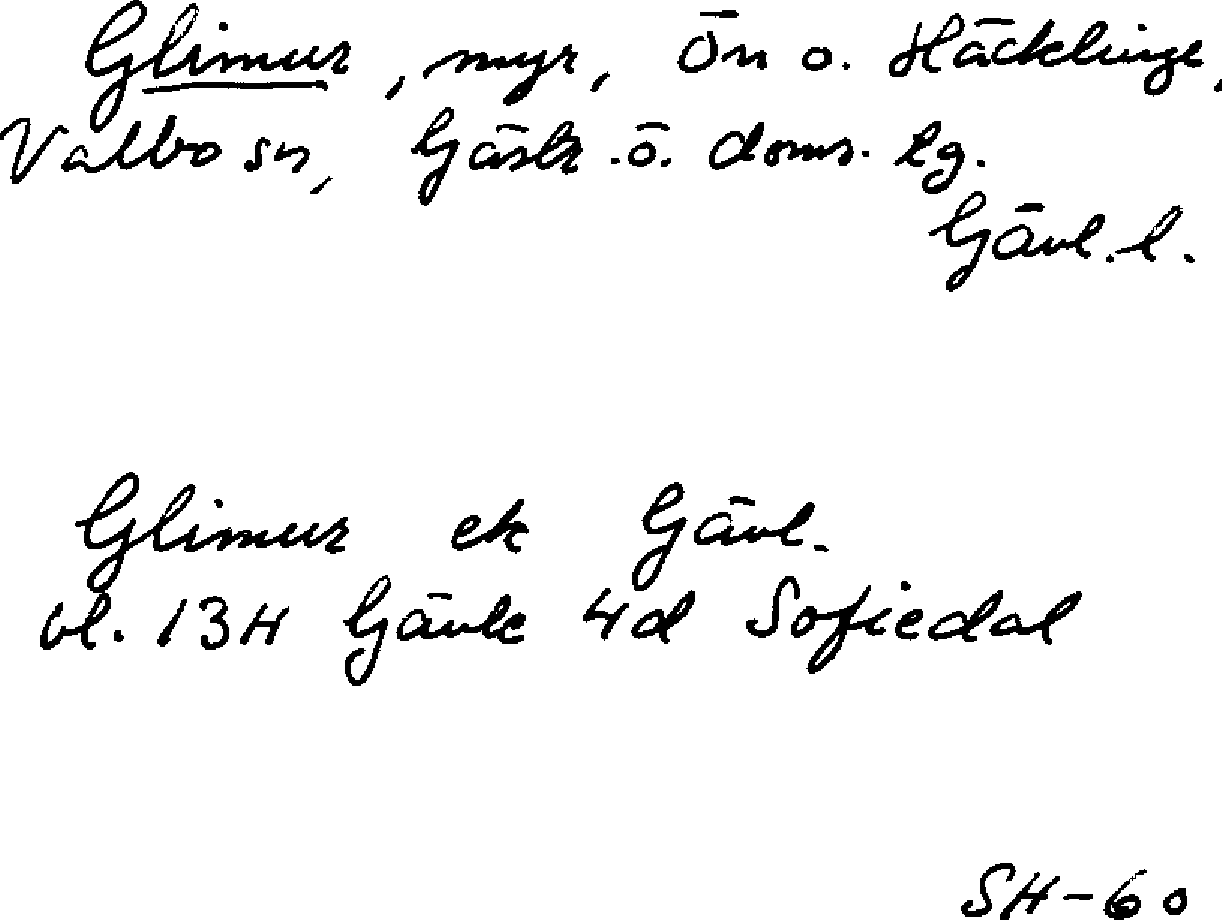 Glimur, myr, Ön o. Häcklinge,
Valbo sn, Gästr. ö. doms. lg.
Gävl. l.
Glimur ek Gävl.
bl. 13H Gävle 4d Sofiedal
SH-60